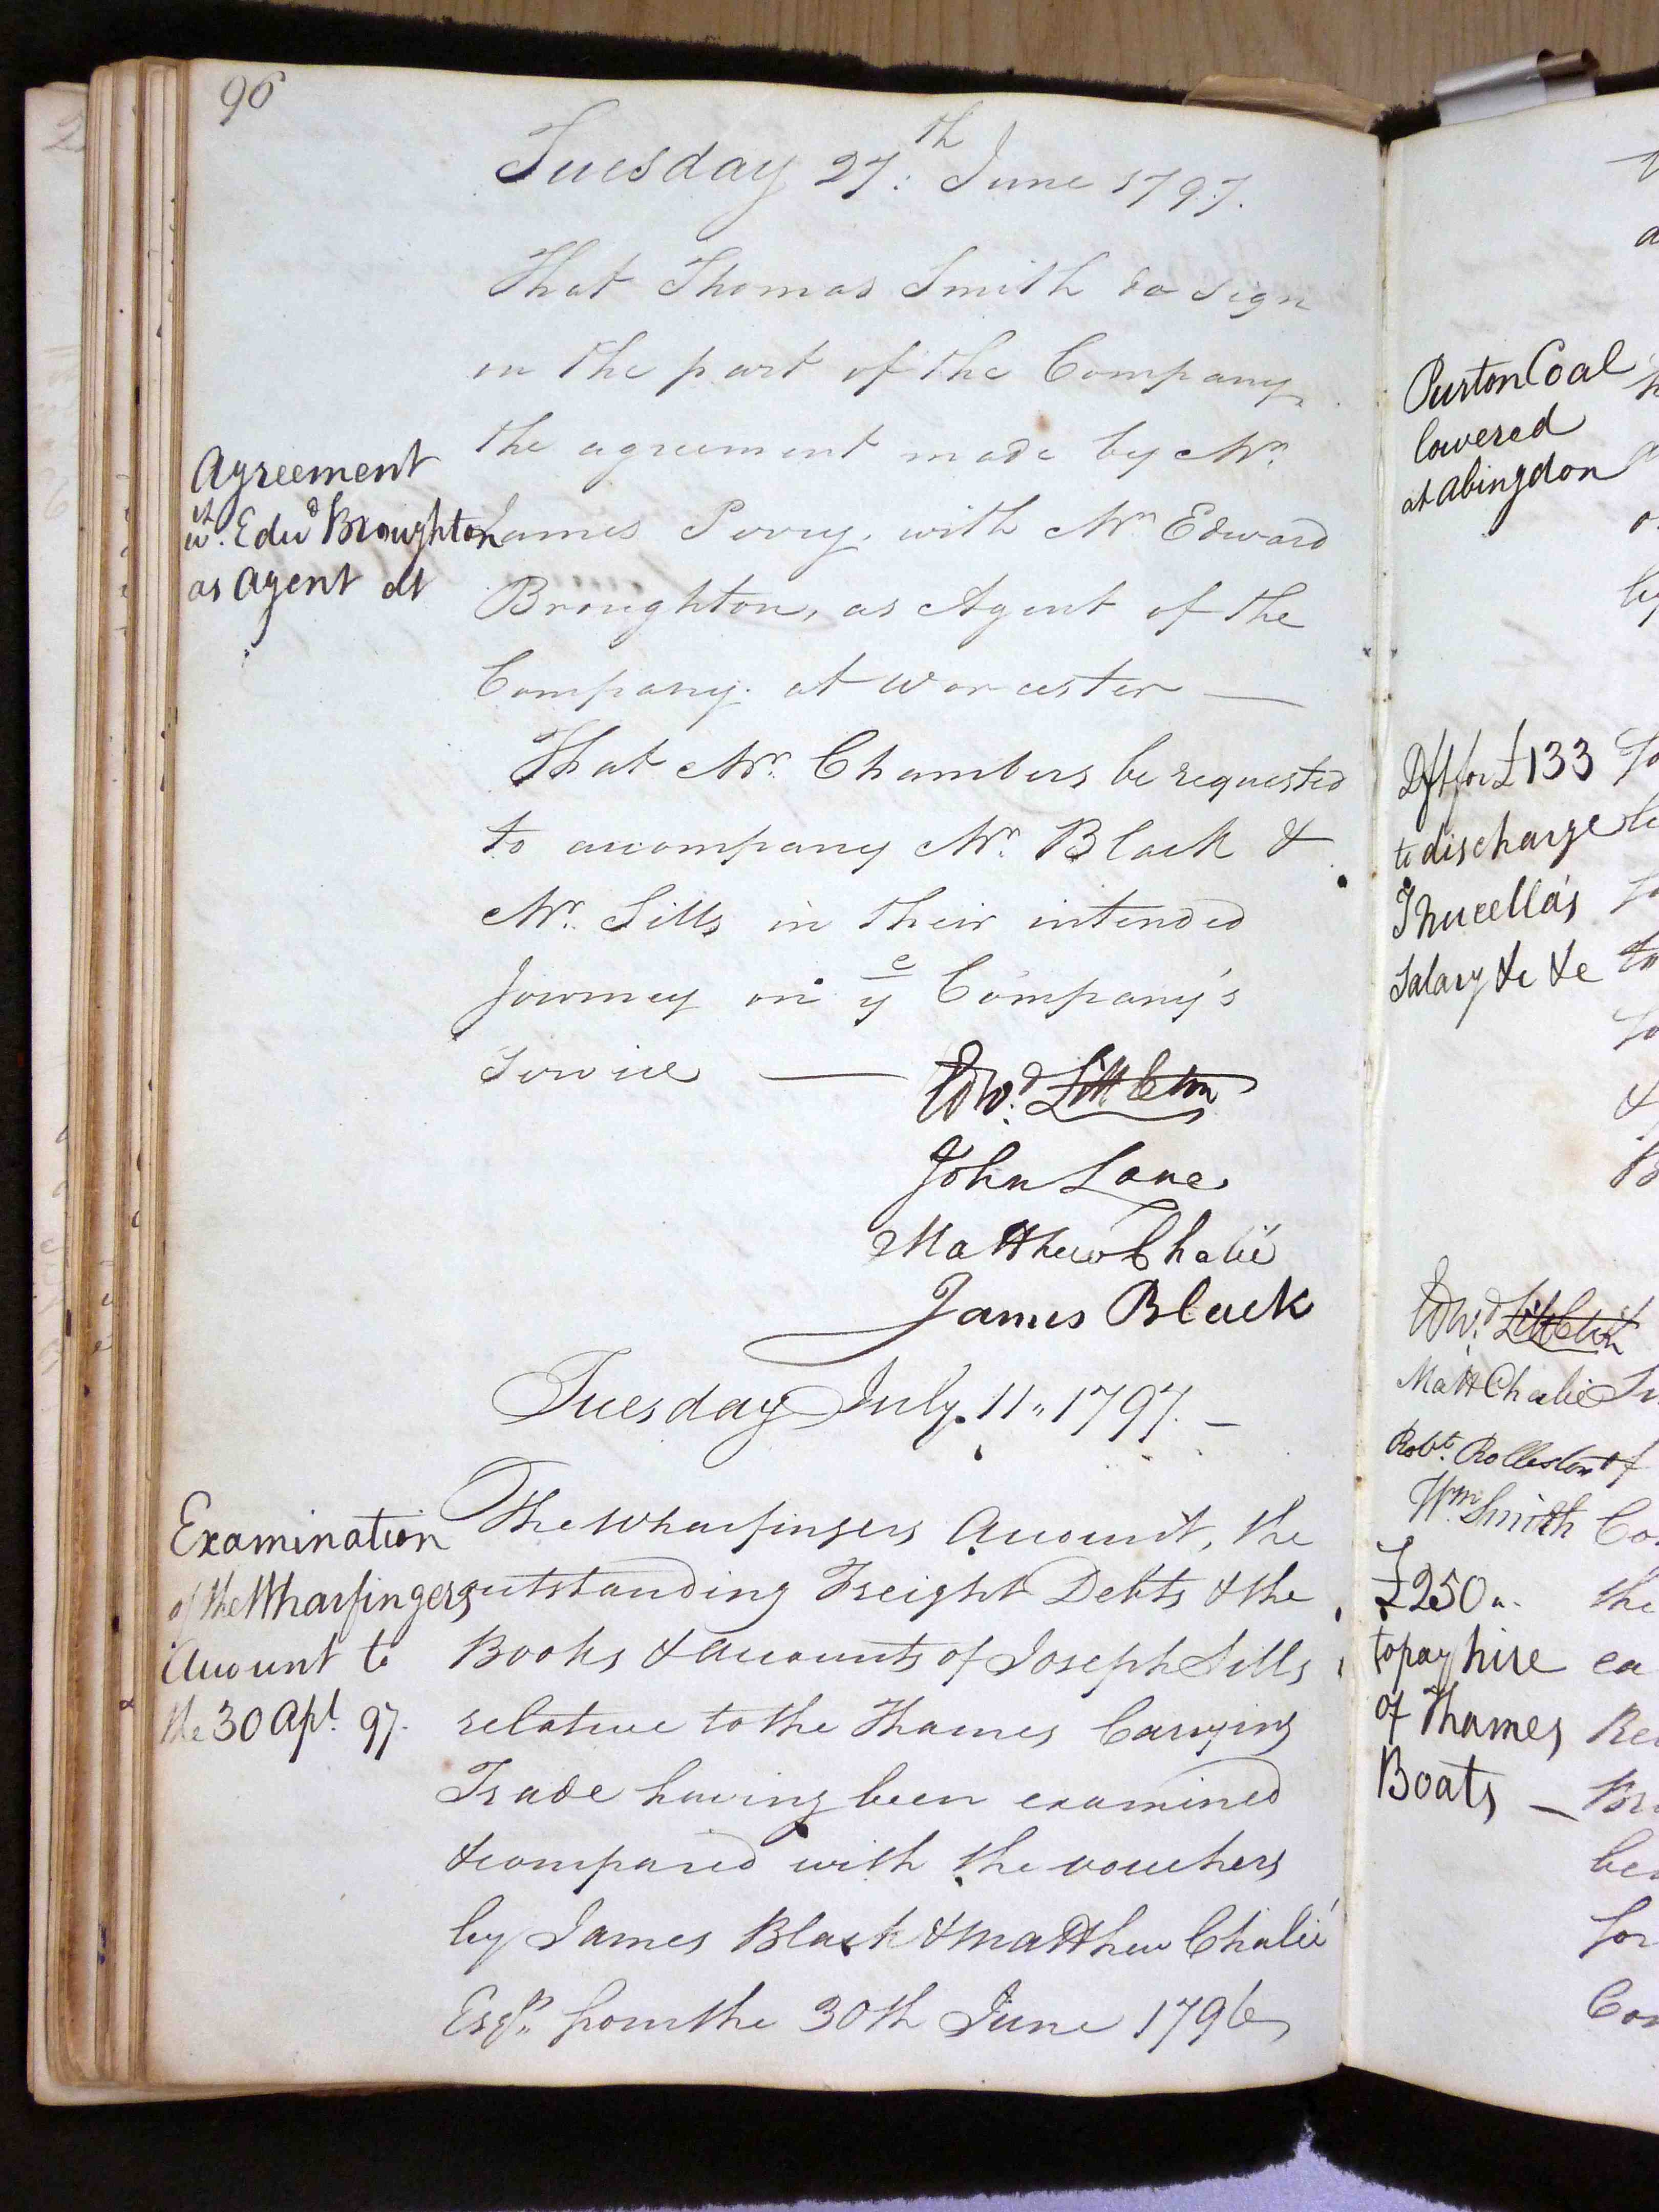 96
Tuesday 27th June 1797.
That Thomas Smith do sign
on the part of the Company
the agreement made by Mr.
James Perry, with Mr Edward
Broughton, as Agent of the
Company at Worcester —
Agreement
wt. Edwd Broughton
as agent at
That Mr. Chambers be requested
to accompany Mr. Black &
Mr. Sills in their intended
Journey on ye Company's
Service —
Edwd. Littleton
John Lane
Matthew Chalié
James Black
Tuesday July 11,, 1797. —
Examination
of the Wharfingers
Account to
the 30 Apl. 97.
The Wharfingers Account, the
outstanding Freight Debts & the
Books & accounts of Joseph Sills
relative to the Thames Carrying
Trade having been examined
& compared with the vouchers
by James Black & Matthew Chalié
Esqrs. from the 30th June 1796
Purton Coal
lowered
at abingdon
Dft for £133
to discharge
Salary &c &c
Edwd. Littleton
Matt Chalie
Robt. Rolleston
Wm. Smith
£250
to pay hire
of Thames
Boats —
the